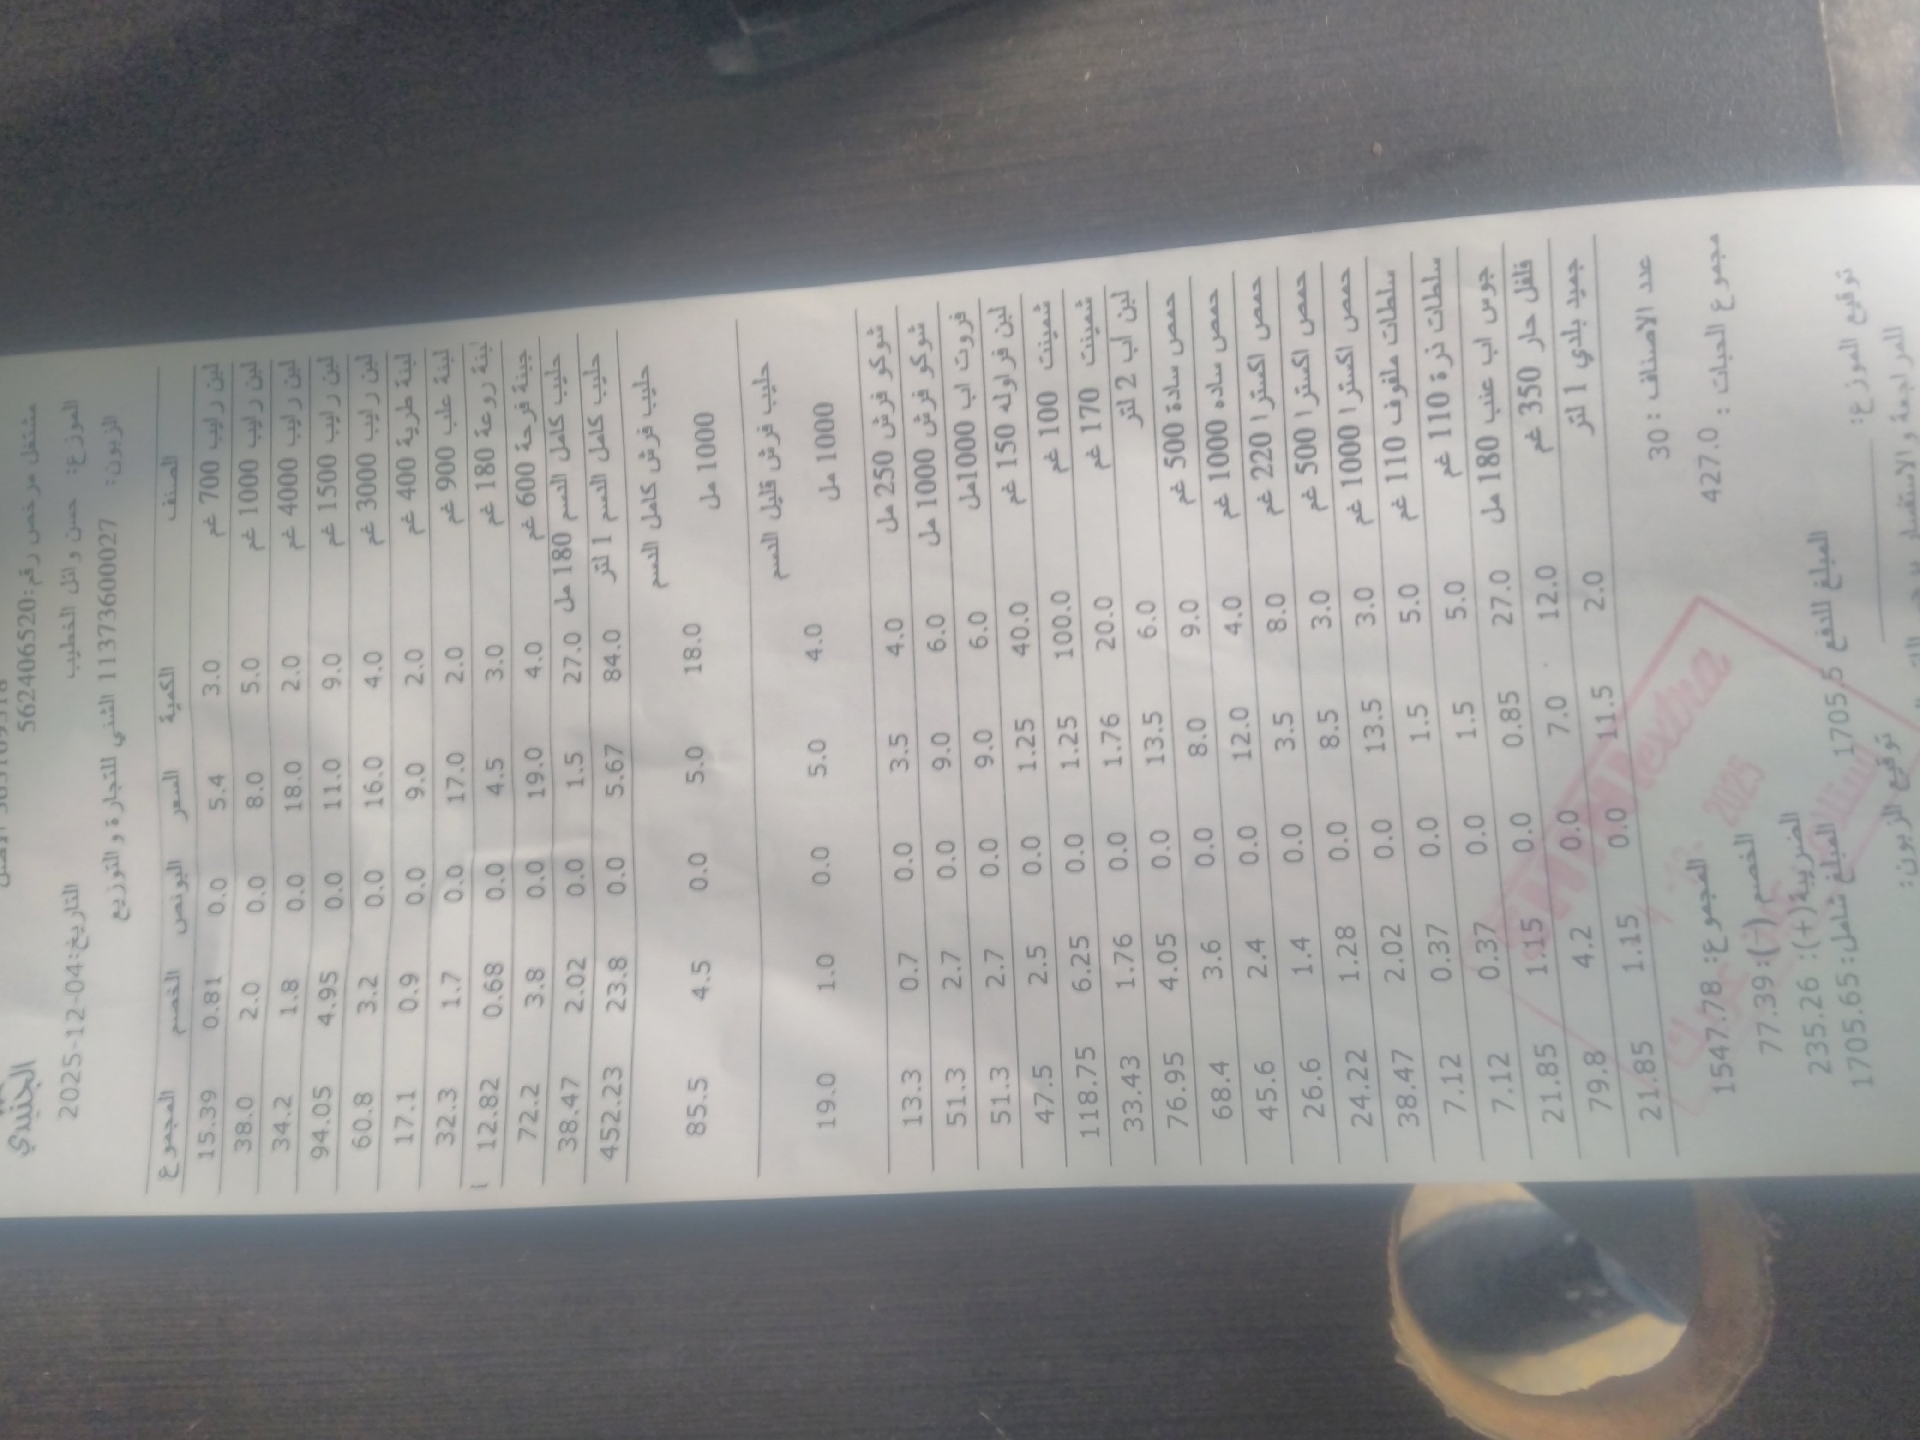 الجنيدي
مشتغل مرخص رقم:562406520
التاريخ:04-12-2025 الموزع: حسن وائل الخطيب
الزبون: 11373600027 الشني للتجارة و التوزيع
الصنف الكمية السعر البونص الخصم المجموع
لبن رايب 700 غم 3.0 5.4 0.0 0.81 15.39
لبن رايب 1000 غم 5.0 8.0 0.0 2.0 38.0
لبن رايب 4000 غم 2.0 18.0 0.0 1.8 34.2
لبن رايب 1500 غم 9.0 11.0 0.0 4.95 94.05
لبن رايب 3000 غم 4.0 16.0 0.0 3.2 60.8
لبنة طرية 400 غم 2.0 9.0 0.0 0.9 17.1
لبنة علب 900 غم 2.0 17.0 0.0 1.7 32.3
لبنة روعة 180 غم 3.0 4.5 0.0 0.68 12.82
جبنة فرحة 600 غم 4.0 19.0 0.0 3.8 72.2
حليب كامل الدسم 180 مل 27.0 1.5 0.0 2.02 38.47
حليب كامل الدسم 1 لتر 84.0 5.67 0.0 23.8 452.23
حليب فرش كامل الدسم
1000 مل 18.0 5.0 0.0 4.5 85.5
حليب فرش قليل الدسم
1000 مل 4.0 5.0 0.0 1.0 19.0
شوكو فرش 250 مل 4.0 3.5 0.0 0.7 13.3
شوكو فرش 1000 مل 6.0 9.0 0.0 2.7 51.3
فروت اب 1000مل 6.0 9.0 0.0 2.7 51.3
لبن فراوله 150 غم 40.0 1.25 0.0 2.5 47.5
شمينت 100 غم 100.0 1.25 0.0 6.25 118.75
شمينت 170 غم 20.0 1.76 0.0 1.76 33.43
لبن اب 2 لتر 6.0 13.5 0.0 4.05 76.95
حمص سادة 500 غم 9.0 8.0 0.0 3.6 68.4
حمص ساده 1000 غم 4.0 12.0 0.0 2.4 45.6
حمص اكسترا 220 غم 8.0 3.5 0.0 1.4 26.6
حمص اكسترا 500 غم 3.0 8.5 0.0 1.28 24.22
حمص اكسترا 1000 غم 3.0 13.5 0.0 2.02 38.47
سلطات ملفوف 110 غم 5.0 1.5 0.0 0.37 7.12
سلطات ذرة 110 غم 5.0 1.5 0.0 0.37 7.12
جوس اب عنب 180 مل 27.0 0.85 0.0 1.15 21.85
فلفل حار 350 غم 12.0 7.0 0.0 4.2 79.8
جميد بلدي 1 لتر 2.0 11.5 0.0 1.15 21.85
عدد الاصناف : 30
مجموع الحبات : 427.0 المجموع: 1547.78
الخصم (-): 77.39
الضريبة(+): 235.26
المبلغ للدفع 1705.6 المبلغ شامل: 1705.65
توقيع الموزع: توقيع الزبون:
2025
للمراجعة و الاستفسار